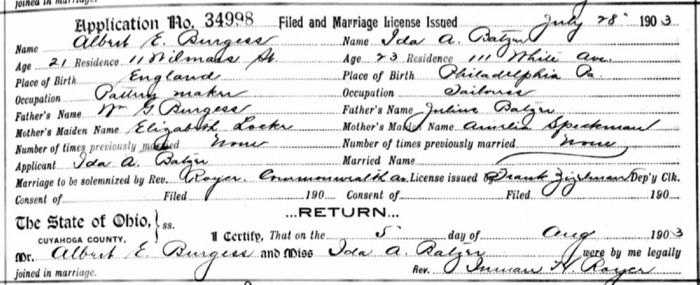 joined in marriage.
Application No. 34998 Filed and Marriage License Issued July 28 1903
Name Albert E. Burgess Name Ida A. Batzer
Age 21 Residence 11 Wilmans St. Age 23 Residence 111 White Ave.
Place of Birth England Place of Birth Philadelphia Pa.
Occupation Pattern maker Occupation Tailoress
Father's Name Wm G. Burgess Father's Name Julius Batzer
Mother's Maiden Name Elizabeth Mother's Maiden Name Amelia Speckman
Number of times previously married None Number of times previously married None
Applicant Ida A. Batzer Married Name
Marriage to be solemnized by Rev. Royer. Commonwealth av. License issued by Frank Dep'y Clk.
Consent of Filed 190 Consent of Filed 190
...RETURN...
The State of Ohio, } ss.
CUYAHOGA COUNTY, I Certify, That on the 5 day of Aug 1903
Mr. Albert E. Burgess and Miss Ida A. Batzer were by me legally
joined in marriage. Rev. Inman H. Royer